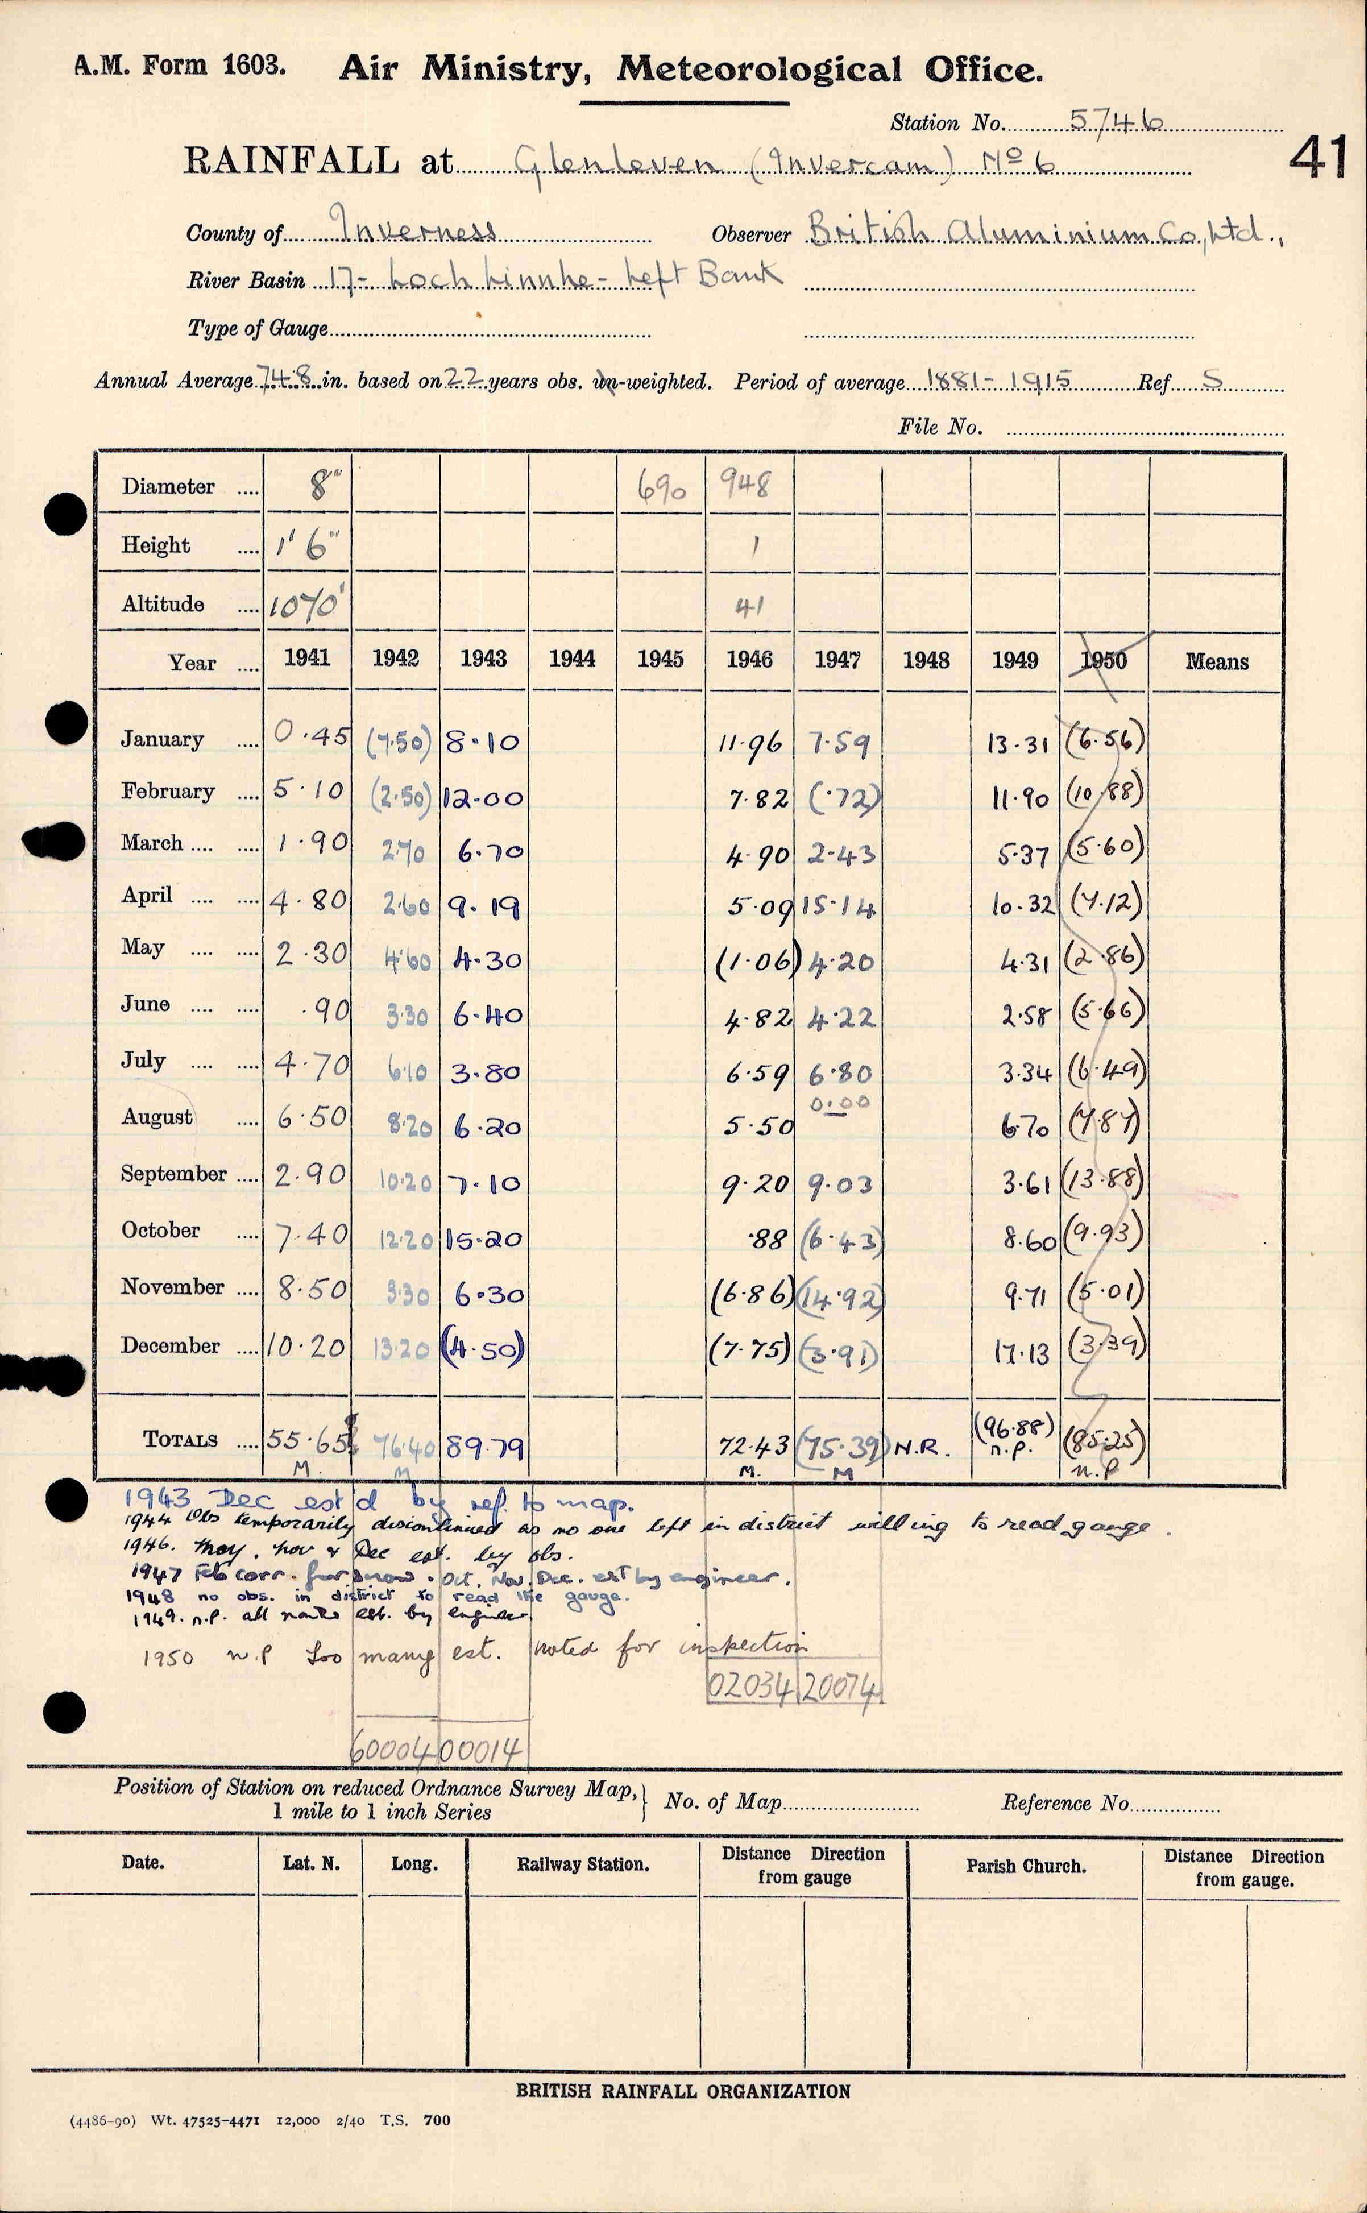 A.M. Form 1603. Air Ministry, Meteorological Office.
Station No. 5746
41
RAINFALL at Glenleven (Invercam) No 6
County of Inverness Observer British Aluminium Co, Ltd.,
River Basin 17- Loch Linnhe - Left Bank
Type of Gauge
Annual Average 74.8 in. based on 22 years obs. un-weighted. Period of average 1881-1915 Ref. S
File No.
Diameter .... 8" 690 948
Height .... 1' 6" 1
Altitude .... 1070' 41
Year .... 1941 1942 1943 1944 1945 1946 1947 1948 1949 1950 Means
January .... 0.45 (7.50) 8.10 11.96 7.59 13.31 (6.56)
February .... 5.10 (2.50) 12.00 7.82 (.72) 11.90 (10.88)
March .... .... 1.90 2.70 6.70 4.90 2.43 5.37 (5.60)
April .... .... 4.80 2.60 9.19 5.09 15.14 10.32 (7.12)
May .... .... 2.30 4.60 4.30 (1.06) 4.20 4.31 (2.86)
June .... .... .90 3.30 6.40 4.82 4.22 2.58 (5.66)
July .... .... 4.70 6.10 3.80 6.59 6.80 3.34 (6.49)
August .... 6.50 8.20 6.20 5.50 0.00 6.70 (7.87)
September .... 2.90 10.20 7.10 9.20 9.03 3.61 (13.88)
October .... 7.40 12.20 15.20 .88 (6.43) 8.60 (9.93)
November .... 8.50 3.30 6.30 (6.86) (14.92) 9.71 (5.01)
December .... 10.20 13.20 (4.50) (7.75) (3.91) 17.13 (3.39)
TOTALS .... 55.65 76.40 89.79 72.43 (75.39) N.R. (96.88) (85.25)
M. M M. M n.p. n.p
1943 Dec est'd by ref. to map.
1944 Obs temporarily discontinued as no one left in district willing to read gauge.
1946. May, Nov & Dec est. by obs.
1947 Feb corr. for snow. Oct, Nov, Dec. est by engineer.
1948 no obs. in district to read the gauge.
1949. n.p. all est. by engineer
1950 n.p Too many est. noted for inspection
02034 20074
60004 00014
Position of Station on reduced Ordnance Survey Map, 1 mile to 1 inch Series } No. of Map Reference No.
Date. Lat. N. Long. Railway Station. Distance Direction from gauge Parish Church. Distance Direction from gauge.
BRITISH RAINFALL ORGANIZATION
(4486-90) Wt. 47525-4471 12,000 2/40 T.S. 700